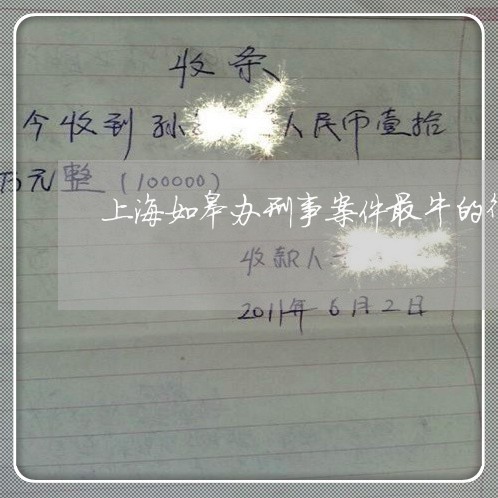 收条
今收到孙 人民币壹拾
万元整(100000)
上海如皋办刑事案件最牛的律
收款人
2011年6月2日